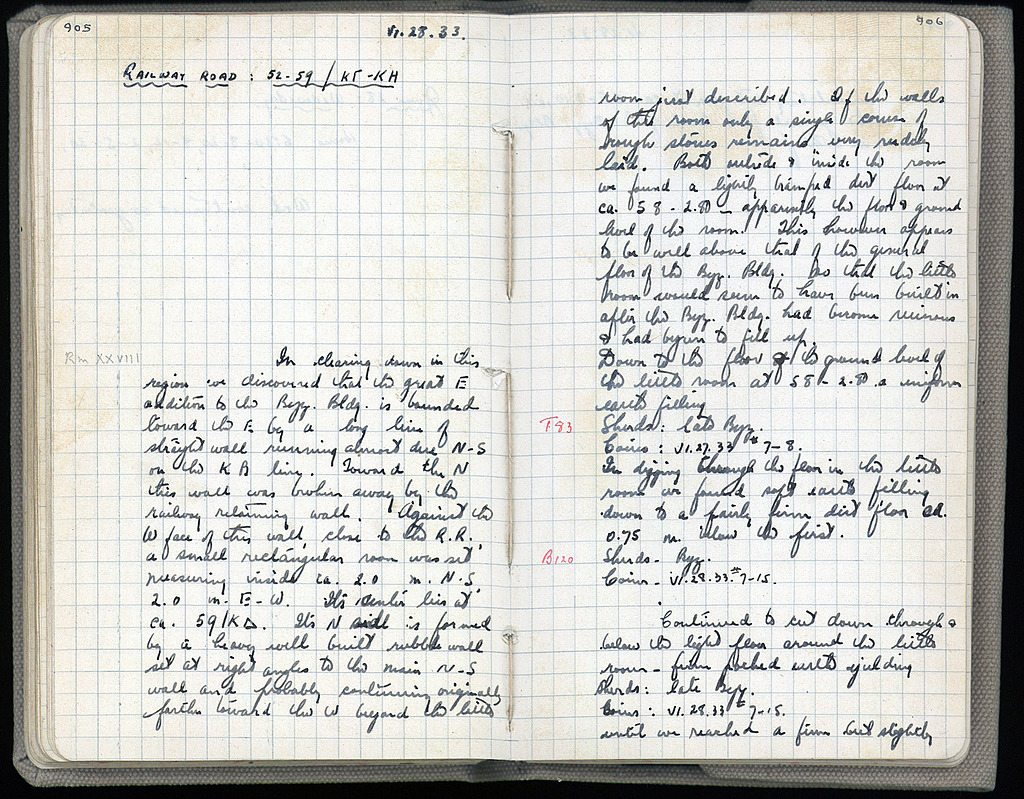 905
VI.28.33.
RAILWAY ROAD : 52-59 / ΚΓ-ΚΗ
Rm XXVIII
In clearing down in this
region we discovered that the great E
addition to the Byz. Bldg. is bounded
toward the E by a long line of
straight wall running almost due N-S
on the K B line. Toward the N
this wall was broken away by the
railway retaining wall. Against the
W face of this wall, close to the R.R.
a small rectangular room was set
measuring inside ca. 2.0 m. N-S,
2.0 m. E-W. Its center lies at
ca. 59/ΚΔ. Its N side is formed
by a heavy well built rubble wall
set at right angles to the main N-S
wall and probably continuing originally
farther toward the W beyond the little
906
room just described. Of the walls
of this room only a single course of
rough stones remains very rudely
laid. Both outside & inside the room
we found a lightly tramped dirt floor at
ca. 58 - 2.80 — apparently the floor & ground
level of the room. This however appears
to be well above that of the general
floor of the Byz. Bldg. so that the little
room would seem to have been built in
after the Byz. Bldg. had become ruinous
& had begun to fill up.
Down to the floor & the ground level of
the little room at 58 - 2.80 a uniform
earth filling
T 83
Sherds: late Byz.
Coins: VI.27.33 # 7-8.
In digging through the floor in the little
room we found soft earth filling
down to a fairly firm dirt floor ca.
0.75 m. below the first.
B120
Sherds - Byz.
Coins - VI.28.33.# 7-15.
Continued to cut down through &
below the light floor around the little
room - firm packed earth yielding
Sherds: late Byz.
Coins: VI.28.33 # 7-15.
until we reached a firm but slightly